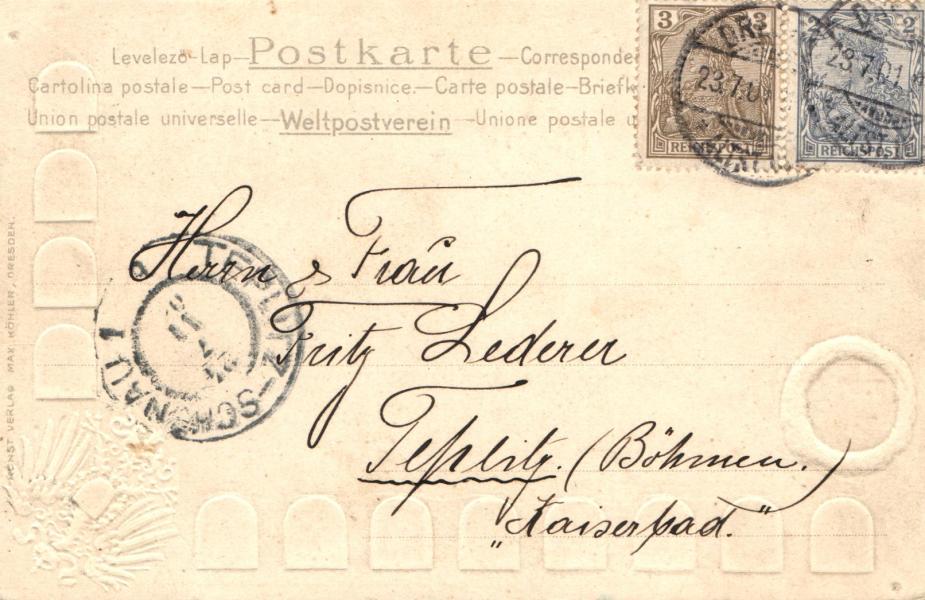 Levelező-Lap—Postkarte—Corresponde
Cartolina postale—Post card—Dopisnice.—Carte postale—Briefk
Union postale universelle—Weltpostverein—Unione postale u
3 3
REICHSPOST
2 2
REICHSPOST
DRE
23.7.01
DR
23.7.01
Herrn & Frau
Fritz Lederer
Teplitz. (Böhmen.)
„Kaiserbad."
TEPLITZ-SCHÖNAU 1
KUNST VERLAG MAX KÖHLER, DRESDEN.